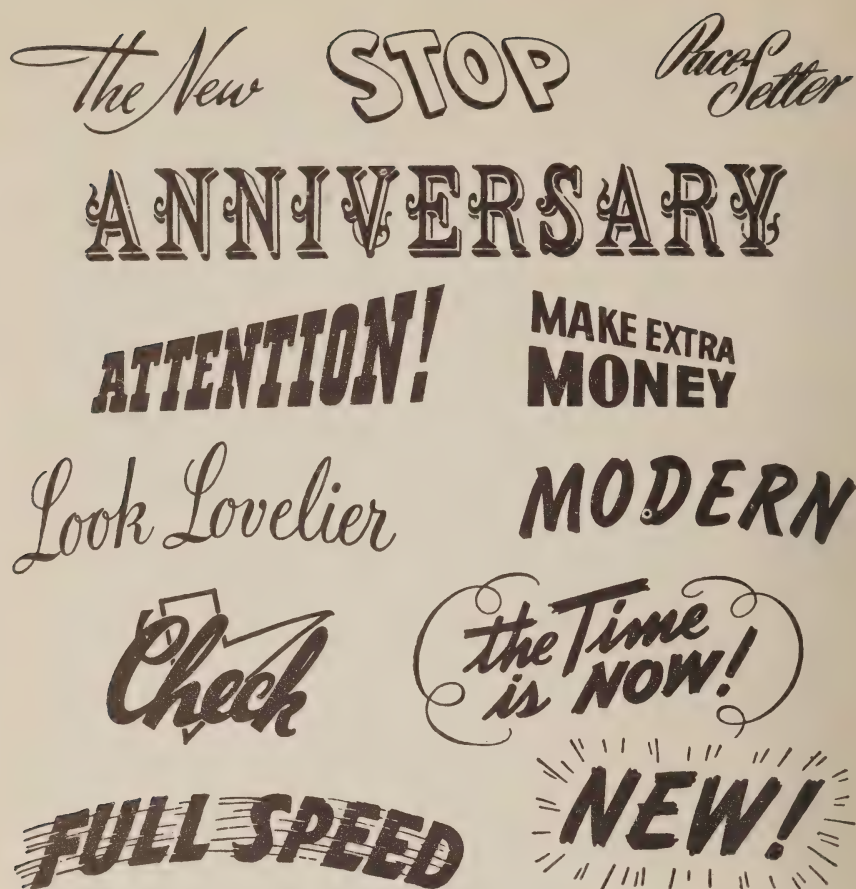 The New
STOP
Pace Setter
ANNIVERSARY
ATTENTION!
MAKE EXTRA
MONEY
Look Lovelier
MODERN
Check
the Time
is NOW!
FULL SPEED
NEW!